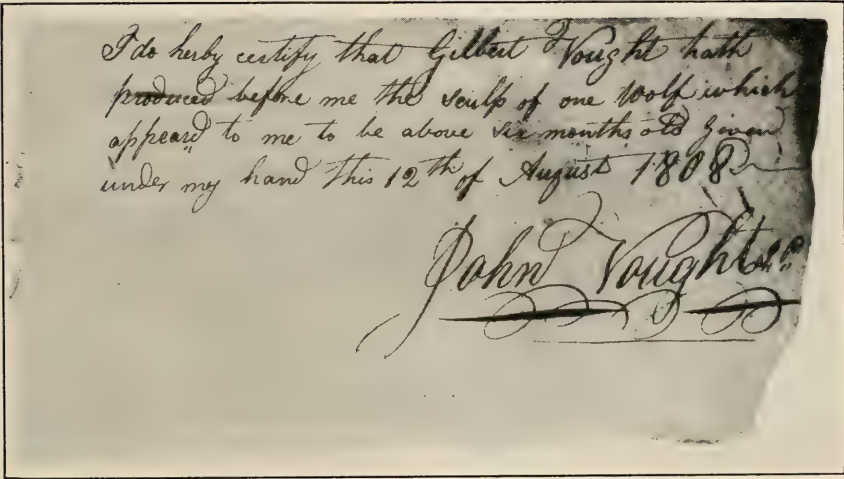 I do herby certify that Gilbert Vought hath
produced before me the sculp of one Wolf which
appeard to me to be above six months old Given
under my hand this 12th of August 1808
John Vought